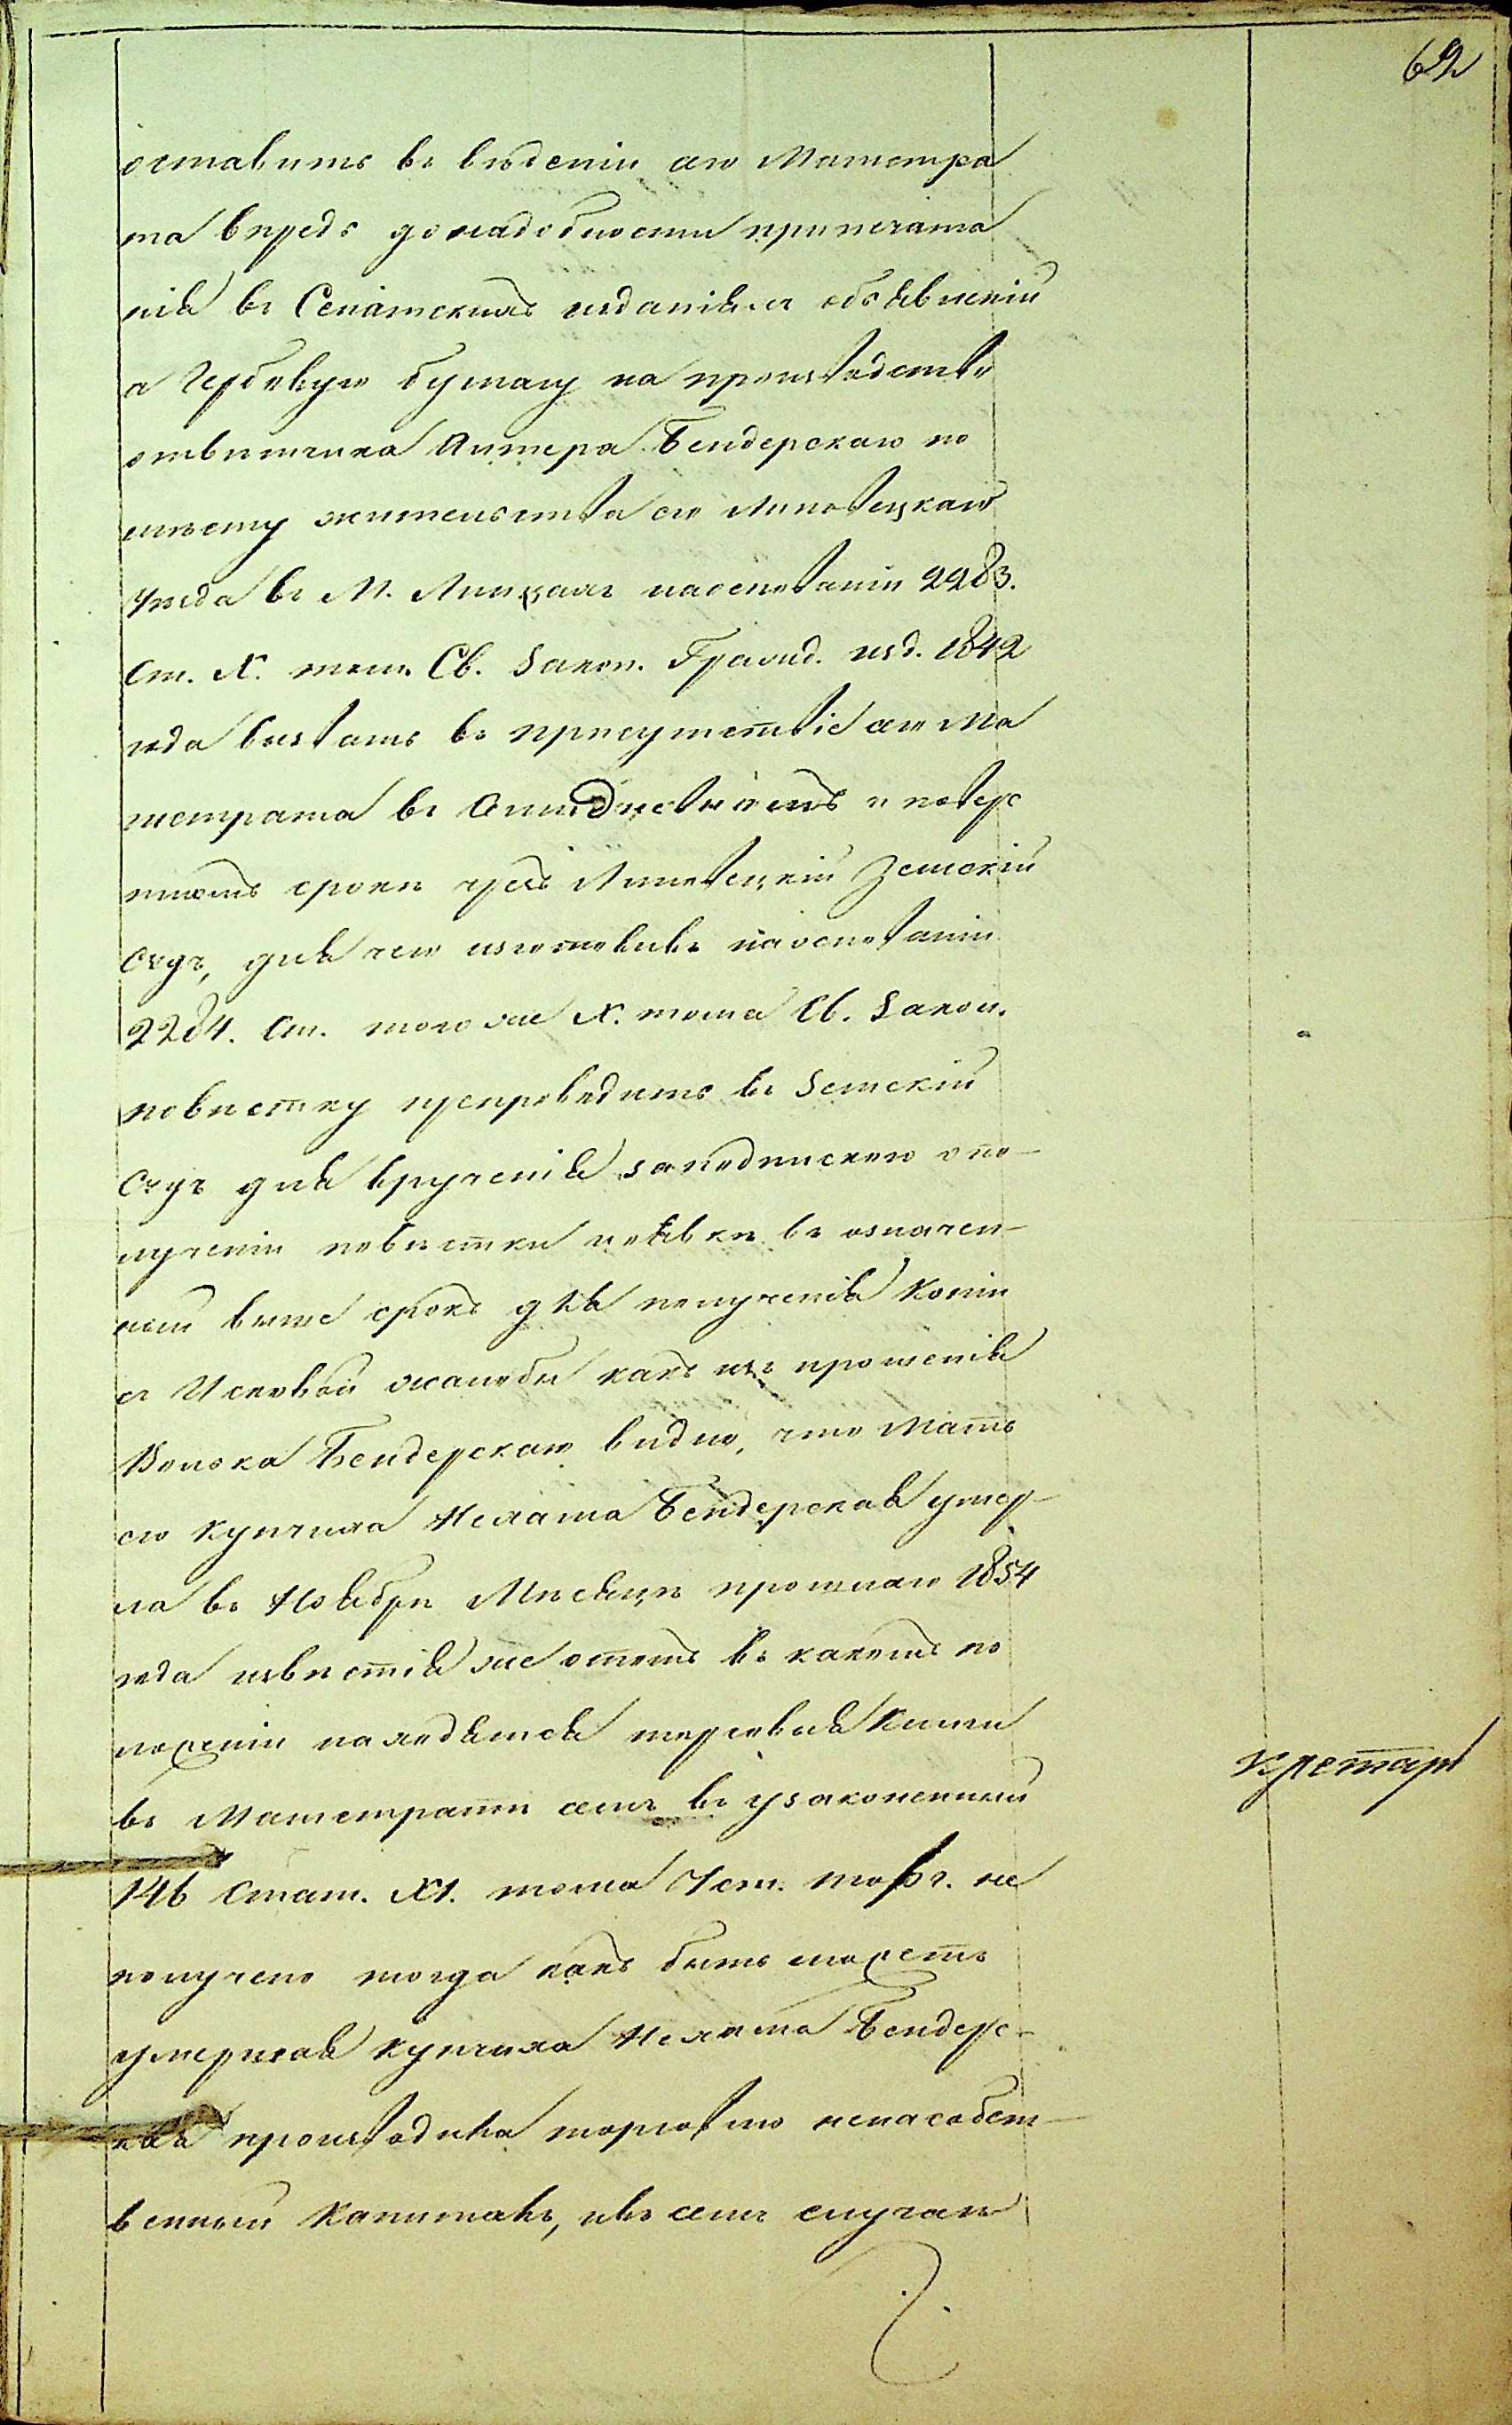 62
оставить въ вѣденіи сего Магистра
та впредь до надобности припечата
нія въ Сенатскихъ изданіяхъ объявленій
а Гербовую бумагу на производство
ответчика Антера Бендерскаго по
мѣсту жительства его Липовецкаго
Уезда въ М. наосновании 2283.
Ст. X. том. Св. Закон. Гражд. изд. 1842
года вызвать въ присутствіе сего Ма
гистрата въ и поверс
тномъ срокѣ чрезъ Липовецкій Земскій
Судъ, для чего изготовивъ наосновании
2284. Ст. того же X. тома Св. Закон.
повѣстку препроводить въ Земскій
Судъ для врученія заподпискою о по-
лученіи повѣстки и явкѣ въ означен-
ный выше срокъ для полученія Копіи
съ Исковой жалобы какъ изъ прошенія
Волька Бендерскаго видно, что Мать
его купчиха Нехама Бендерская умер-
ла въ Ноябрѣ Мѣсяцѣ прошлаго 1854
года извѣстія же о томъ въ какомъ по
ложеніи находятся торговыя Книги
въ Магистратѣ семъ въ узаконенный
146 Стат. XI. тома Уст. торг. не
получено тогда какъ быть можетъ
умершая купчиха Нехама Бендерс-
кая производила торговлю ненасобст-
венный Капиталъ, ивъ семъ случаѣ
кретарь